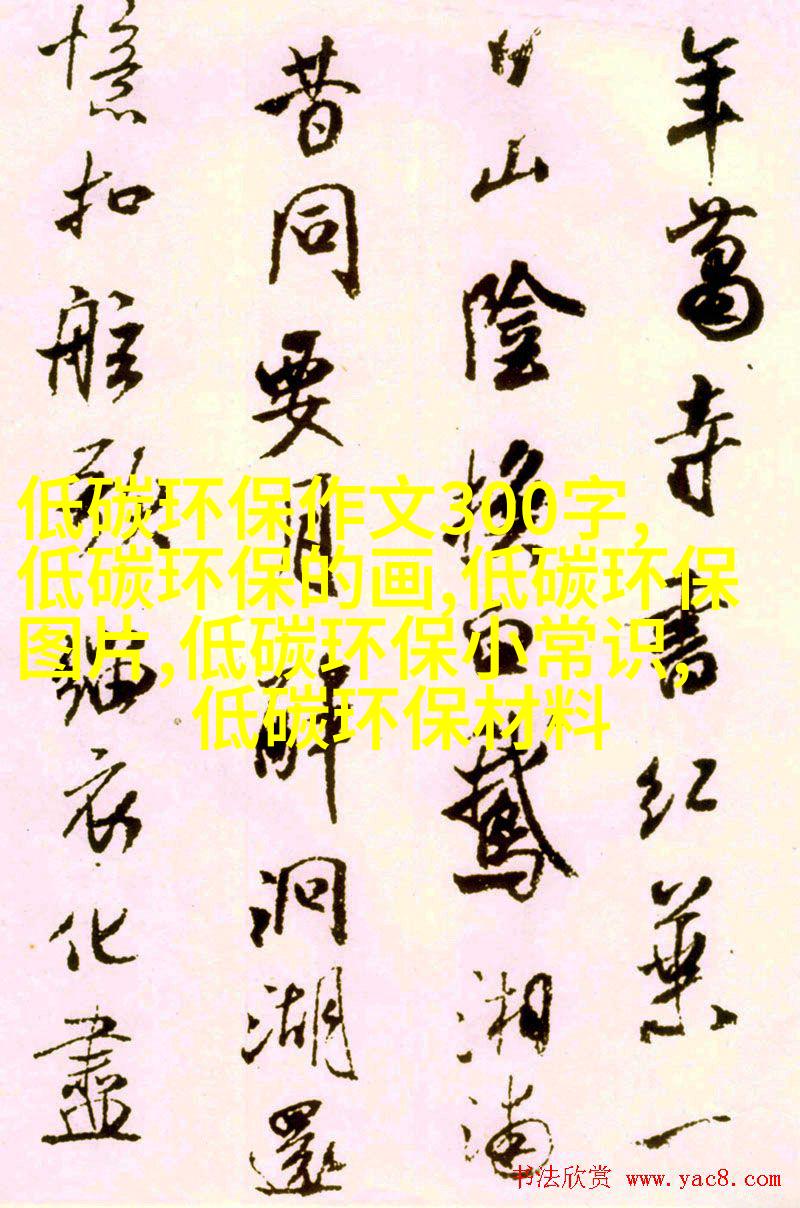 年蕭寺書红葉一
日山陰换白鵝湘浦
昔同要月醉洞湖還
憶扣舷歌缁衣化盡
低碳环保作文300字,
低碳环保的画,低碳环保
图片,低碳环保小常识,
低碳环保材料
书法欣赏 www.yac8.com